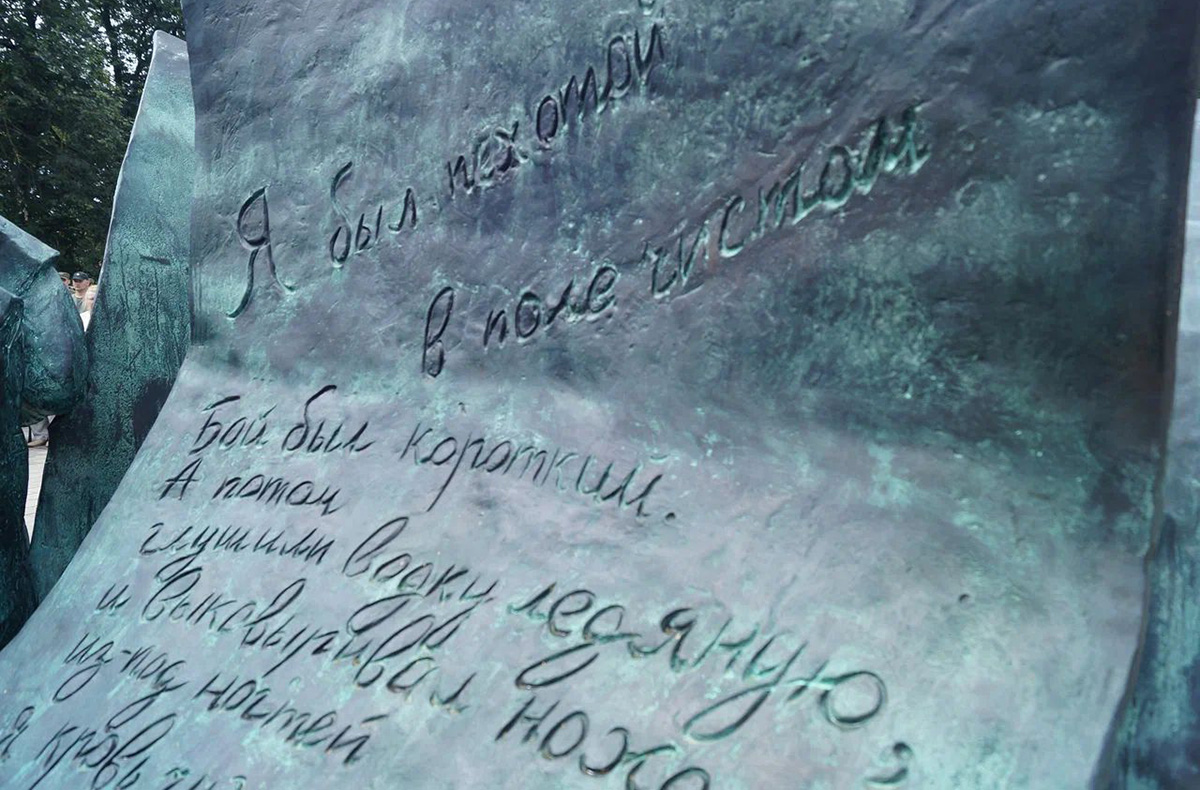 Я был пехотой
в поле чистом
Бой был короткий.
А потом
глушили водку ледяную,
и выковыривал ножо
из-под ногтей
я кровь